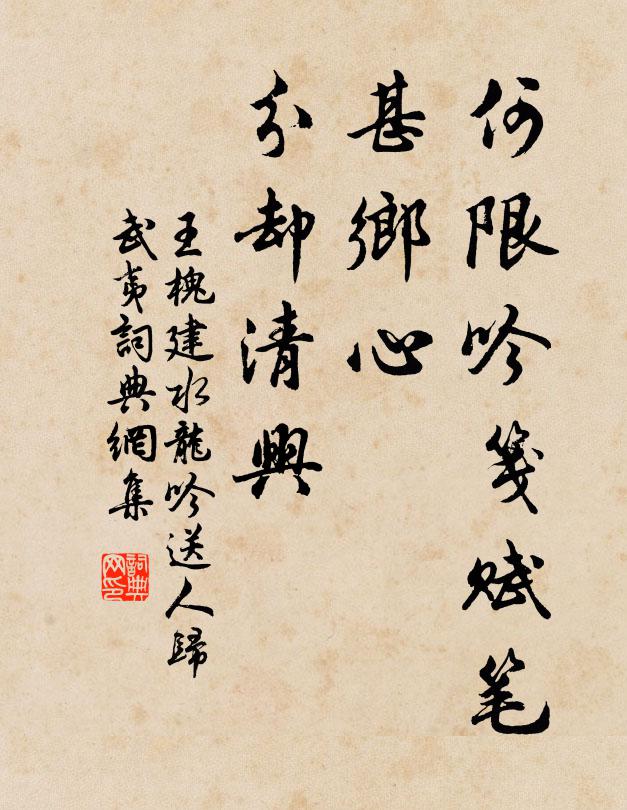 何限吟笺赋笔
甚鄉心
分却清興
王槐建水龍吟送人歸
武夷詞典網集
詞典
网印